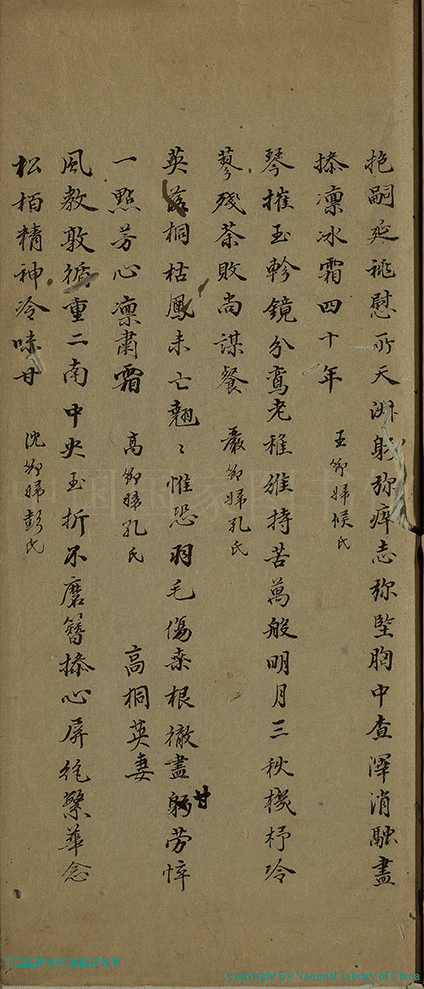 抱嗣延祧慰所天淋躬弥瘁志弥堅胸中查滓消融盡
操凛冰霜四十年　王節婦侯氏
琴摧玉軫鏡分鸞老稚維持苦萬般明月三秋機杼冷
蓼殘荼敗尚謀餐　嚴節婦孔氏
英落桐枯鳳未亡翹〻惟恐羽毛傷桑根徹盡躬勞悴
甘
一點芳心凛肅霜　高節婦孔氏　高桐英妻
風教敦循重二南中央玉折不磨簪操心屏絶繁華念
松栢精神冷味甘　沈節婦彭氏
Copyright By National Library of China